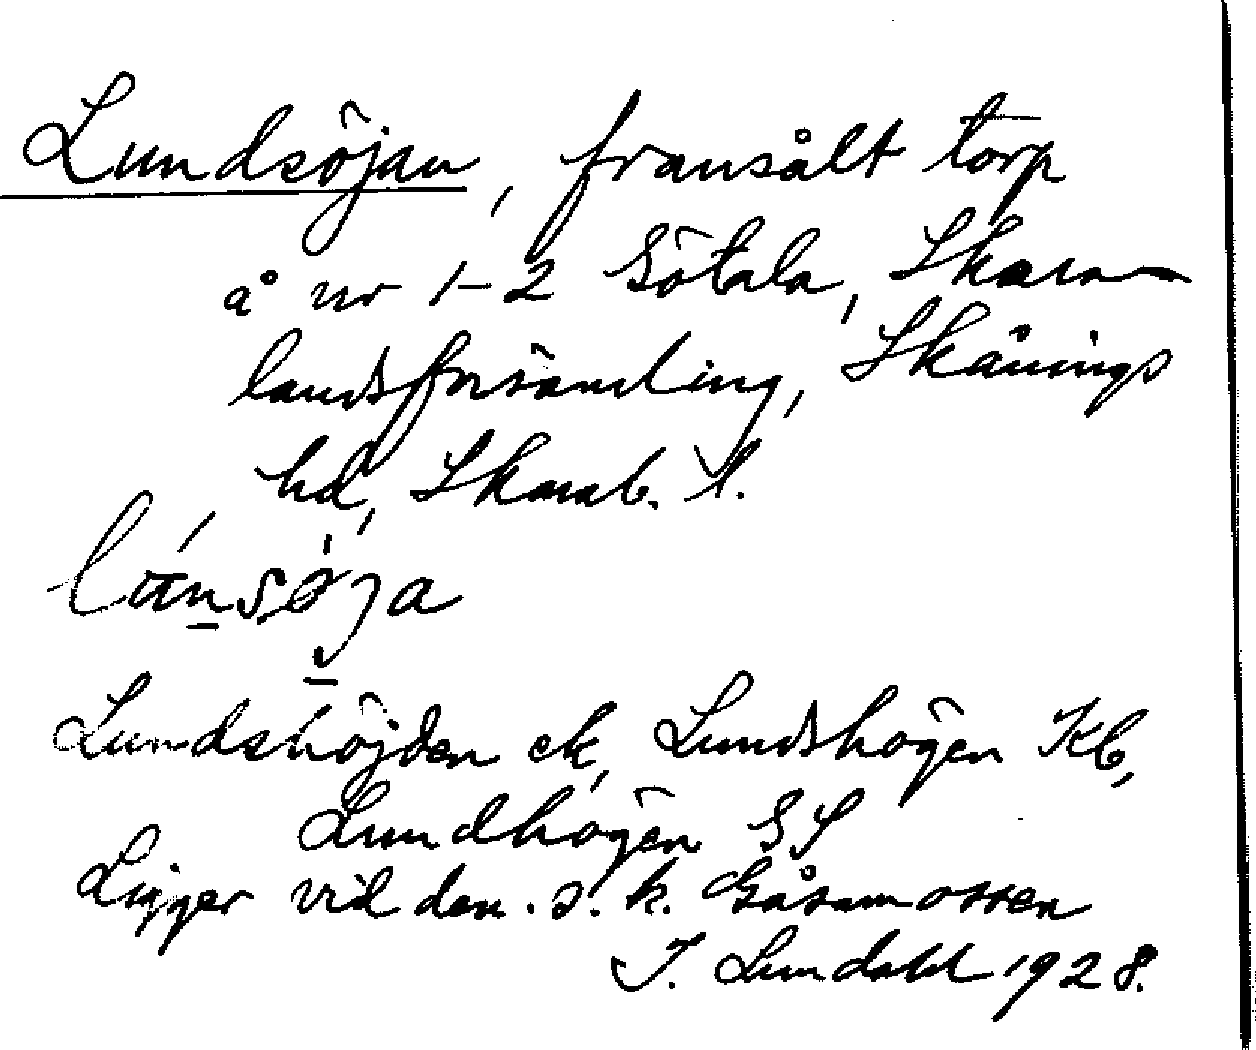 Lundsöjan, fransålt torp
å nr 1-2 Götala, Skara
landsförsamling, Skånings
hd, Skarab. l.
Lundshöjden ek, Lundshögen Kb,
Lundhögen GS
Ligger vid den s. k. Gåsamossen
I. Lundahl 1928.